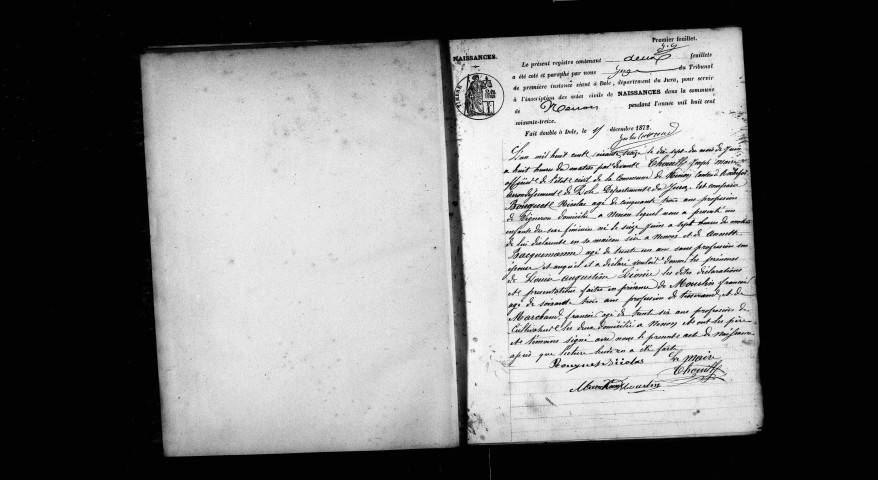 Premier feuillet.
NAISSANCES.
Le présent registre contenant deux feuillets
a été coté et paraphé par nous Juge du Tribunal
de première instance séant à Dole, département du Jura, pour servir
à l'inscription des actes civils de NAISSANCES dans la commune
de Nenon pendant l'année mil huit cent
soixante-treize.
Fait double à Dole, le décembre 1872.
L'an mil huit cent soixante treize le dix sept du mois de Juin
a huit heures du matin par devant Chouffe Joseph maire
officier de l'état civil de la Commune de Nenon Canton de Rochefort
arrondissement de Dole Département du Jura est comparu
Bouquet Nicolas agé de cinquante trois ans profession
de Vigneron domicilié a Nenon lequel nous a presenté un
enfant du sexe féminin né le seize Juin a sept heures du matin
de lui déclarant en sa maison sise a Nenon et de Annette
Bacquemanne agé de trente un ans sans profession son
épouse et auquel il a déclaré vouloir donner les prénoms
de Louise Augustine Léonie les dites déclarations
et presentation faites en présence de Mourlin francois
agé de soixante trois ans profession de tisserand et de
Marchand francois agé de trente six ans profession de
Cultivateur les deux domicilié a Nenon et ont les père
et témoins signé avec nous le present acte de naissance
après que lecture leur en a été faite
Bouquet Nicolas Le maire
Chouffe
Marchand Mourlin